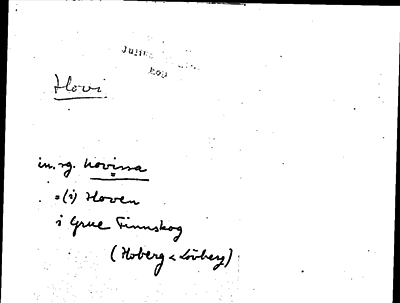 Julius
Hovi
in. sg. hovissa
= (i) Hoven
i Grue Finnskog
(Hoberg < Lövberg)